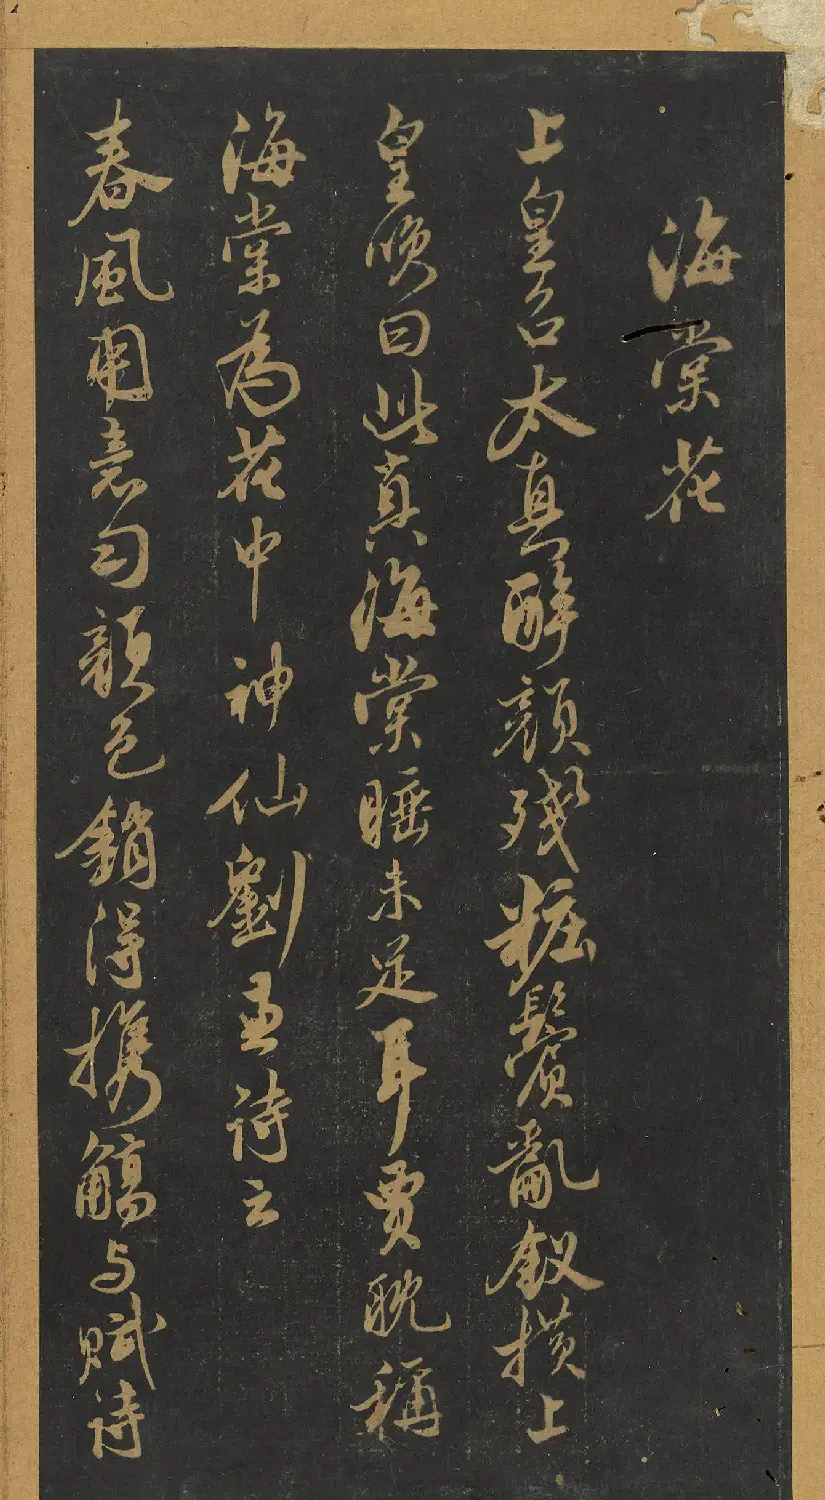 海棠花
上皇召太真醉顔殘粧鬢亂釵横上
皇咲曰此真海棠睡未足耳賈耽稱
海棠為花中神仙劉孟詩云
春風用意匀顔色銷得携觴与賦詩